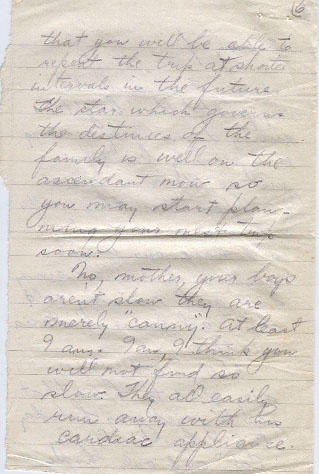 6
that you will be able to
repeat the trip at shorter
intervals in the future.
The star which governs
the destinies of the
family is well on the
ascendant now so
you may start plan-
ning your next trip
soon.
No, mother, your boys
aren't slow they are
merely "canny". At least
I am. I think you
will not find so
slow. They al easily
run away with his
cardiac appliance.